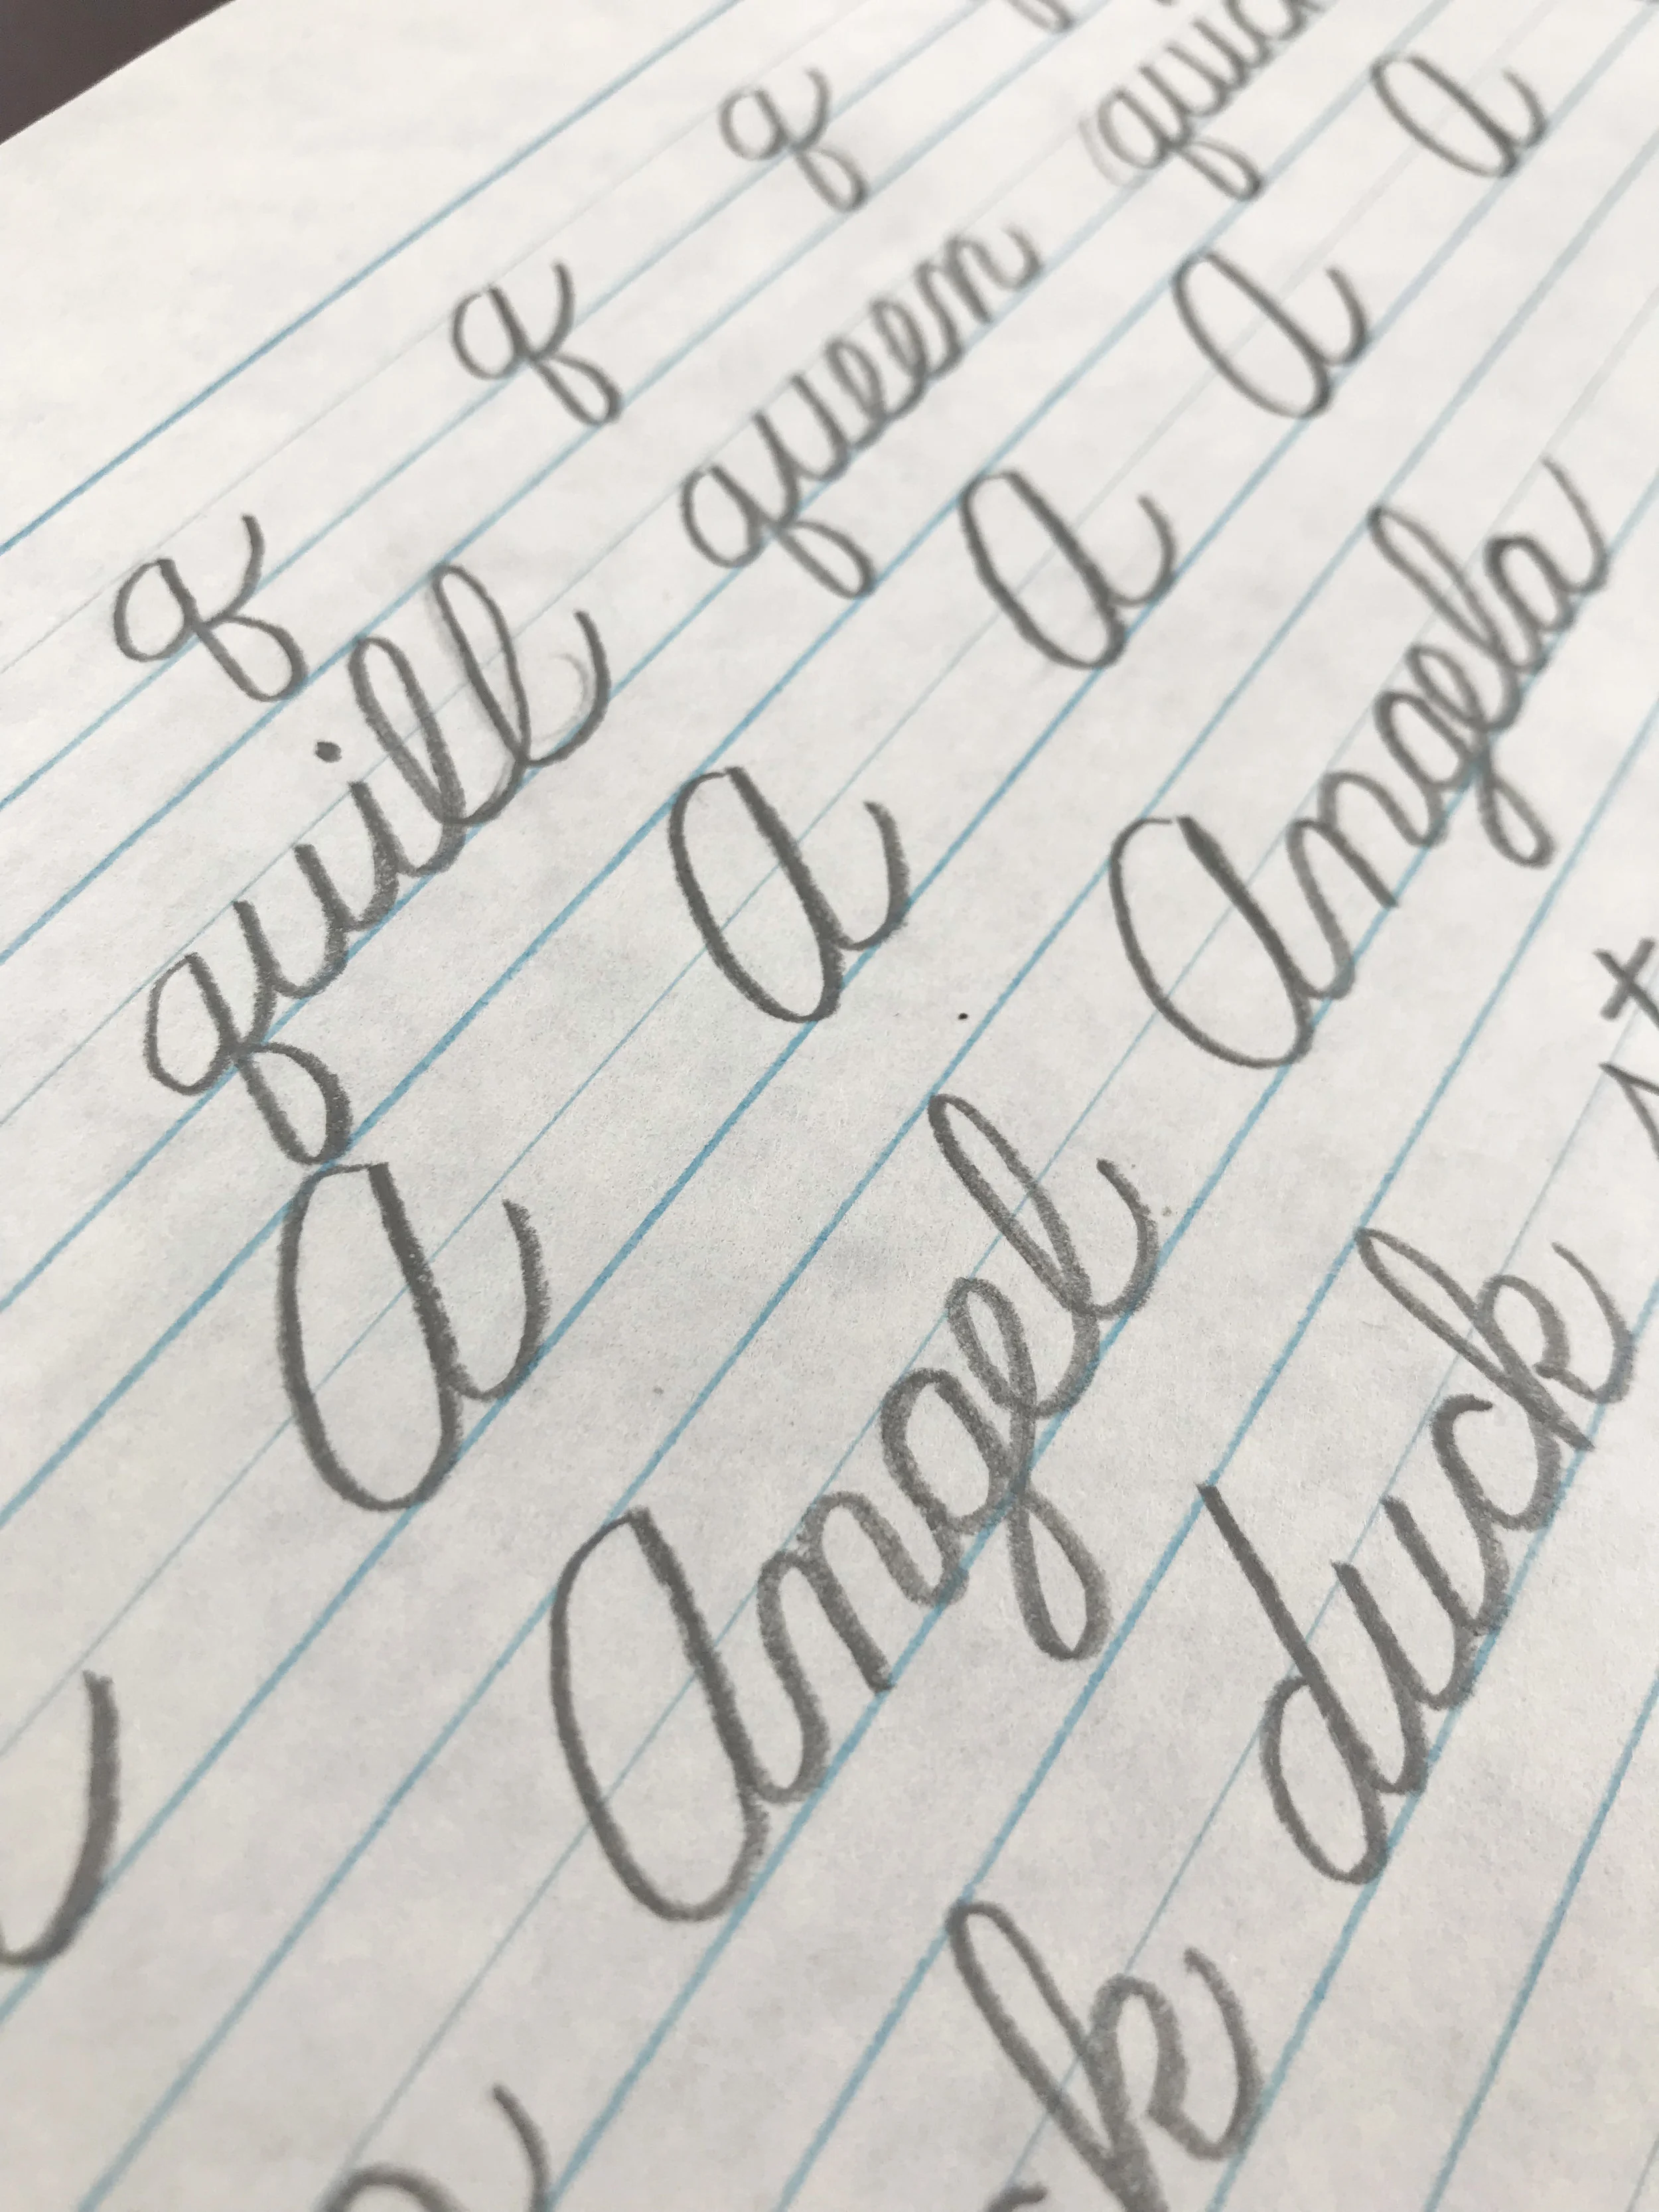 q q q
quill queen
A A A A A
Angel Angela
duck